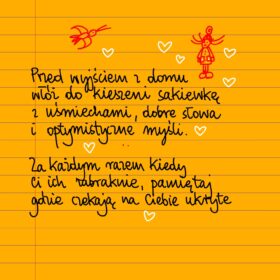 Przed wyjściem z domu
włóż do kieszeni sakiewkę
z uśmiechami, dobre słowa
i optymistyczne myśli.
Za każdym razem kiedy
Ci ich zabraknie, pamiętaj
gdzie czekają na Ciebie ukryte